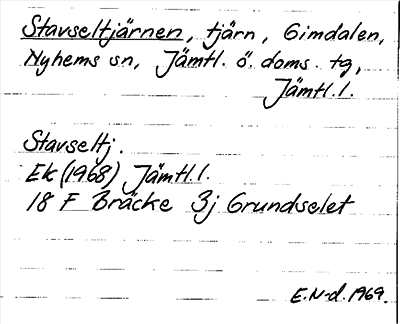 Stavseltjärnen, tjärn, Gimdalen,
Nyhems sn, Jämtl. ö. doms. tg,
Jämtl. l.
Stavseltj.
Ek (1968) Jämtl. l.
18 F Bräcke 3j Grundselet
E. N-d. 1969.